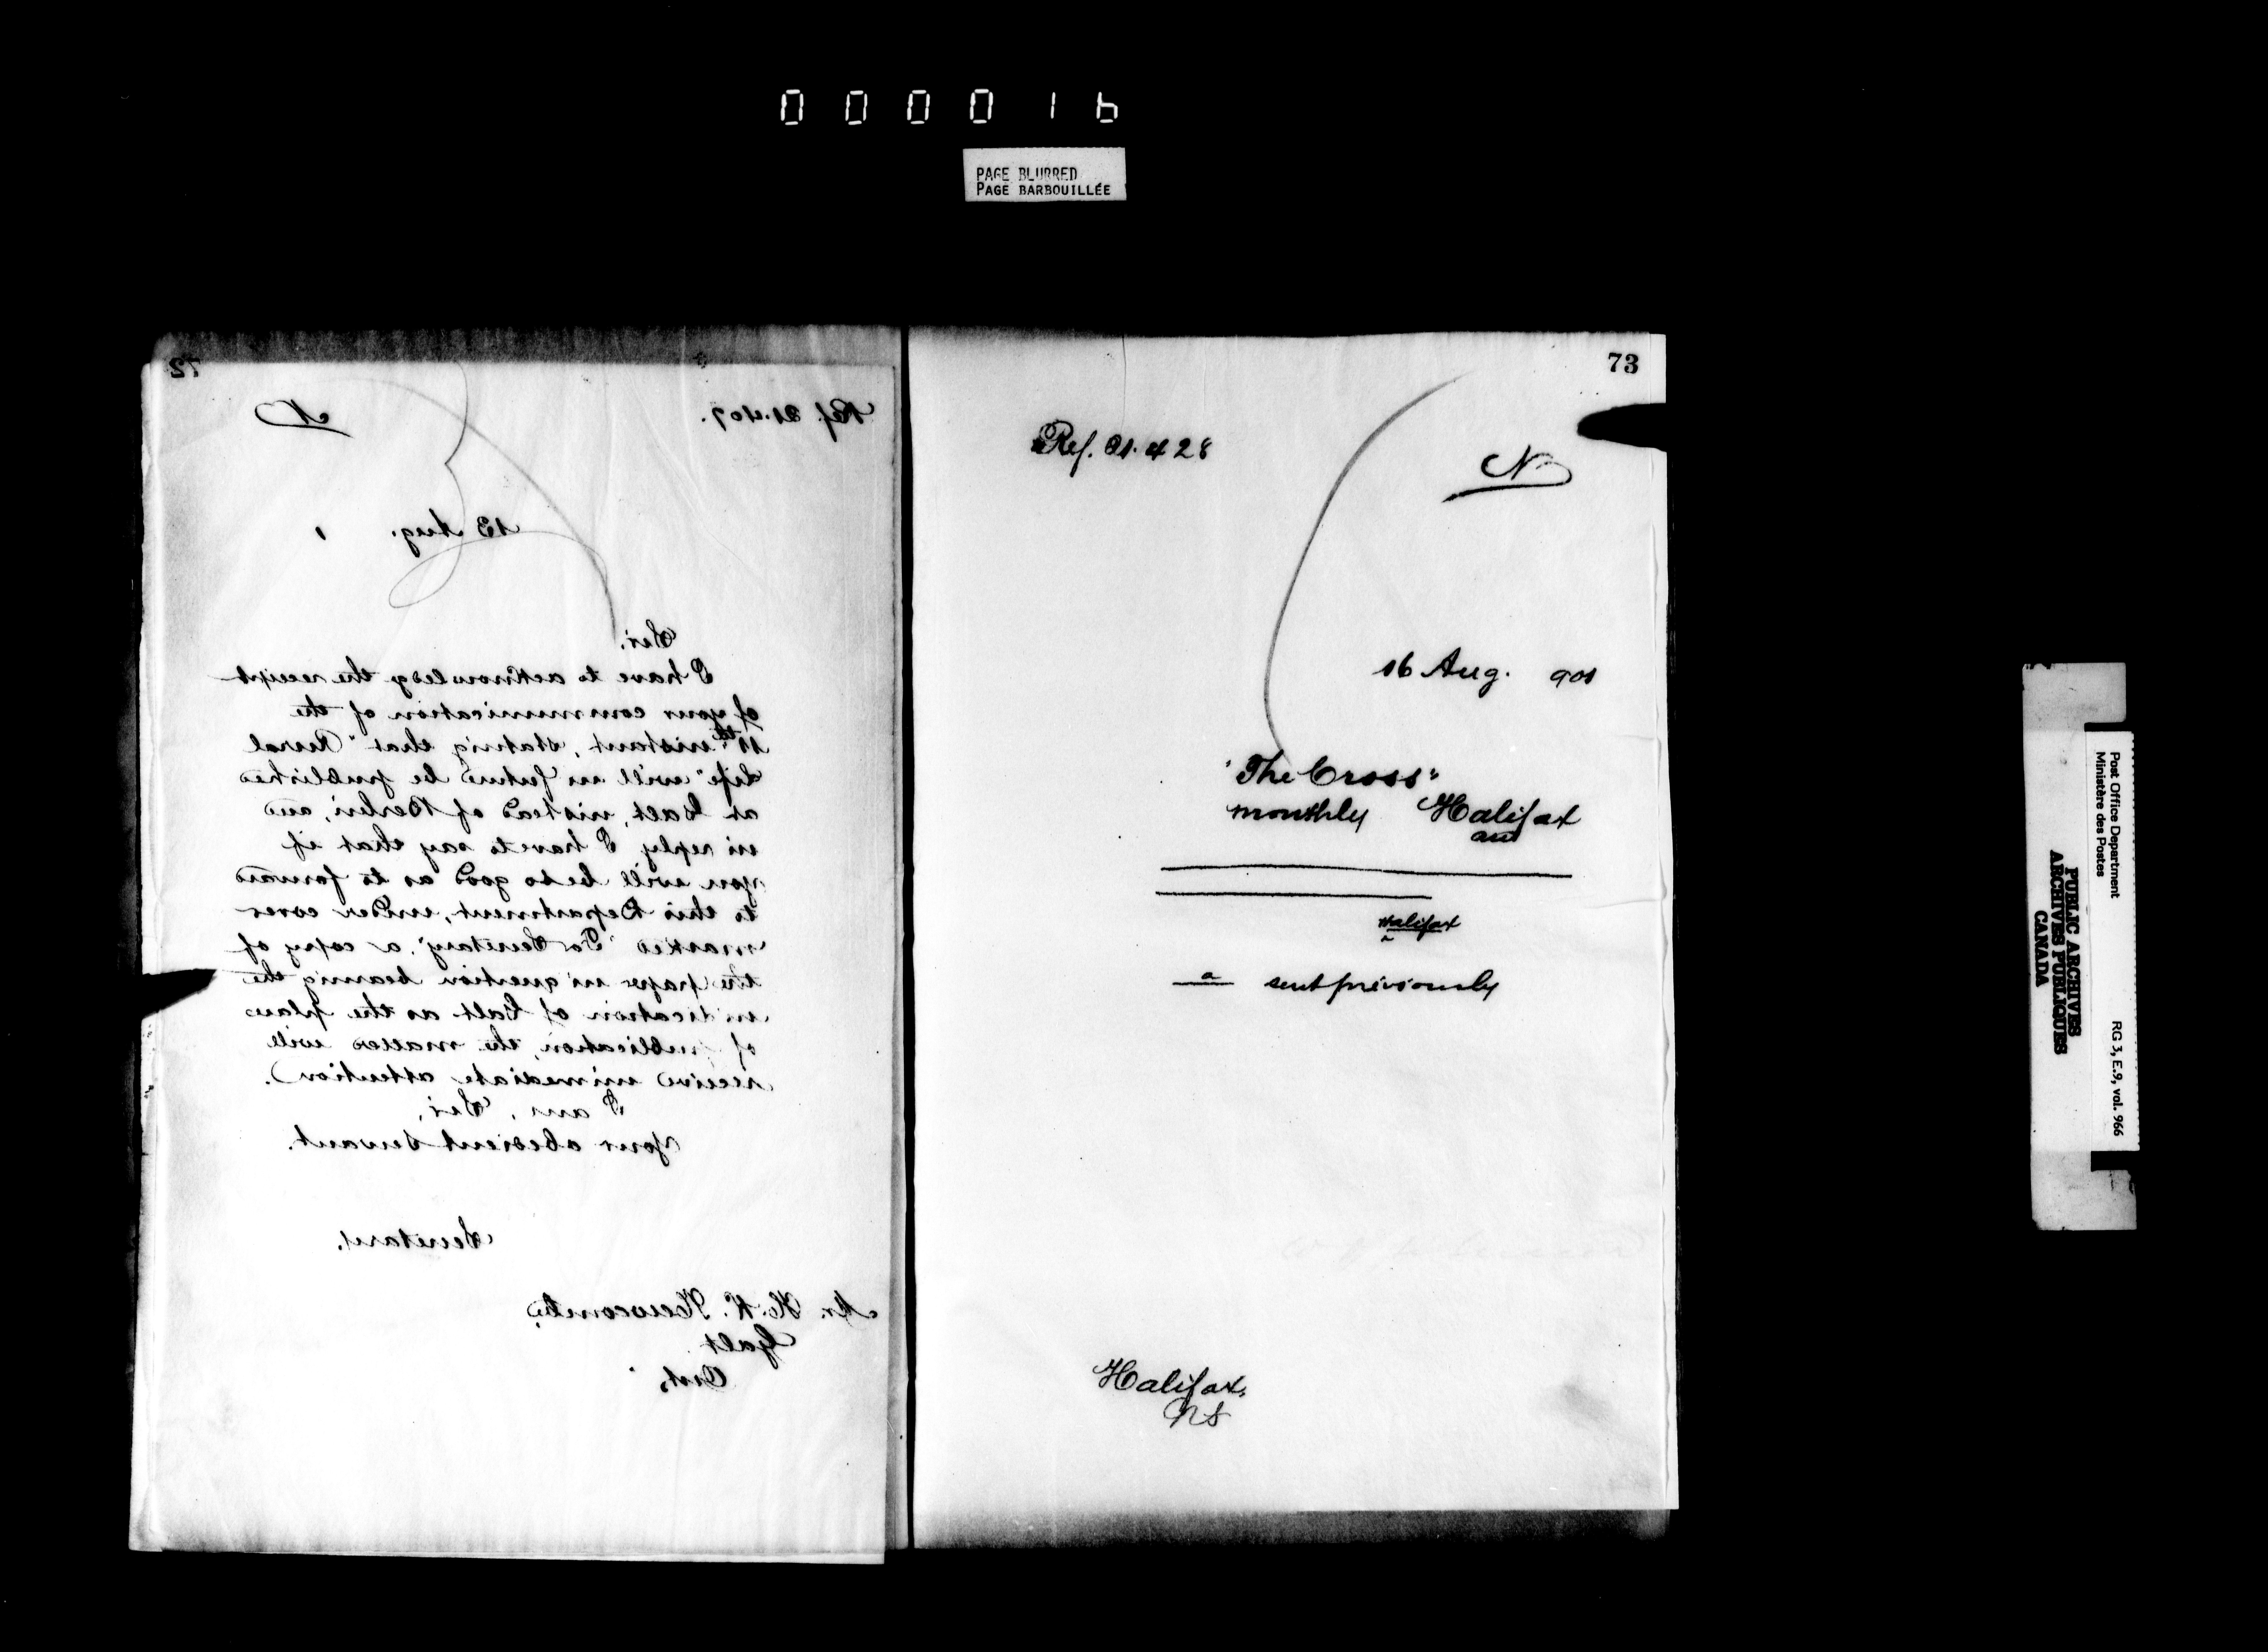 000016
PAGE BLURRED
PAGE BARBOUILLÉE
72
Ref. 21.407.
N
13 Aug. 1
Sir.
I have to acknowledge the receipt
of your communication of the
11th instant, stating that "Rural
Life" will in future be published
at Galt, instead of Berlin, and
in reply I have to say that if
you will be so good as to forward
to this Department, under cover
marked "For Secretary", a copy of
the paper in question bearing the
indication of Galt as the place
of publication, the matter will
receive immediate attention.
I am, Sir,
Your obedient servant.
Secretary.
Mr. H. K.
Galt
Ont.
73
Ref. 21.428
N
16 Aug. 901
"The Cross"
monthly Halifax
and
Halifax
a sent previously
Halifax,
NS
Post Office Department
Ministère des Postes
RG 3, E.9, vol. 966
PUBLIC ARCHIVES
ARCHIVES PUBLIQUES
CANADA